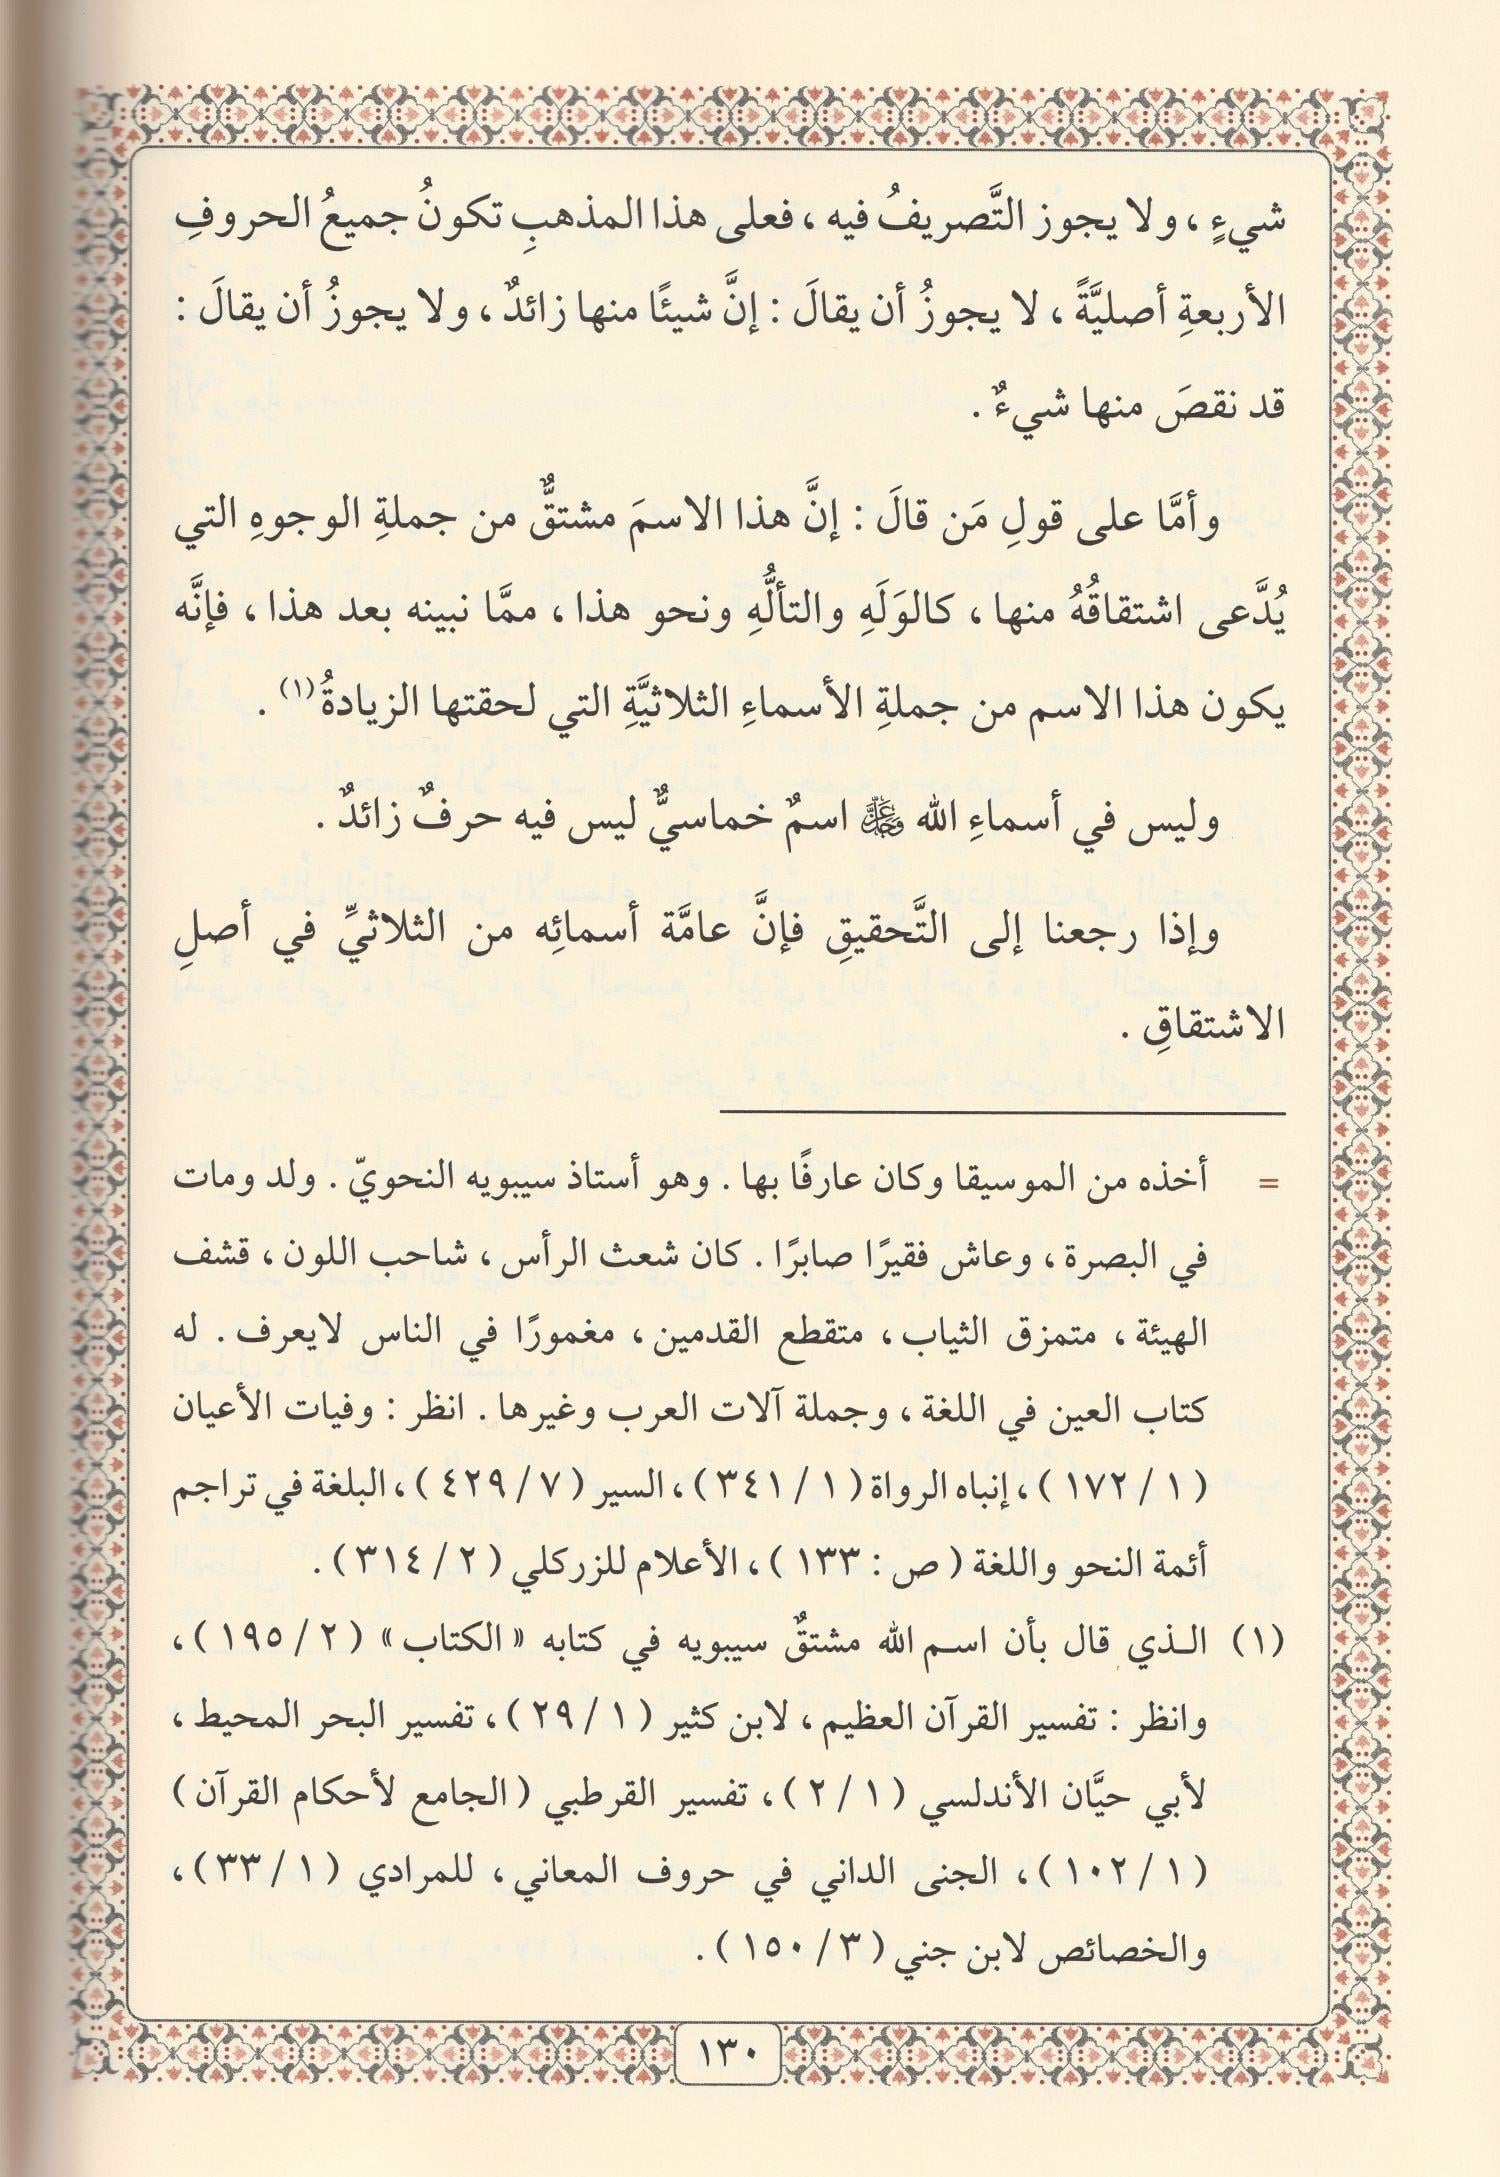 شيءٍ ، ولا يجوز التَّصريفُ فيه ، فعلى هذا المذهبِ تكونُ جميعُ الحروفِ
الأربعةِ أصليَّةً ، لا يجوزُ أن يقالَ : إنَّ شيئًا منها زائدٌ ، ولا يجوزُ أن يقالَ :
قد نقصَ منها شيءٌ .
وأمَّا على قولِ مَن قالَ : إنَّ هذا الاسمَ مشتقٌّ من جملةِ الوجوهِ التي
يُدَّعى اشتقاقُهُ منها ، كالوَلَهِ والتألُّهِ ونحو هذا ، ممَّا نبينه بعد هذا ، فإنَّه
يكون هذا الاسم من جملةِ الأسماءِ الثلاثيَّةِ التي لحقتها الزيادةُ(١) .
وليس في أسماءِ الله عَزَّوَجَلَّ اسمٌ خماسيٌّ ليس فيه حرفٌ زائدٌ .
وإذا رجعنا إلى التَّحقيقِ فإنَّ عامَّة أسمائِه من الثلاثيِّ في أصلِ
الاشتقاقِ .
= أخذه من الموسيقا وكان عارفًا بها . وهو أستاذ سيبويه النحويّ . ولد ومات
في البصرة ، وعاش فقيرًا صابرًا . كان شعث الرأس ، شاحب اللون ، قشف
الهيئة ، متمزق الثياب ، متقطع القدمين ، مغمورًا في الناس لايعرف . له
كتاب العين في اللغة ، وجملة آلات العرب وغيرها . انظر : وفيات الأعيان
( ١ / ١٧٢ ) ، إنباه الرواة ( ١ / ٣٤١ ) ، السير ( ٧ / ٤٢٩ ) ، البلغة في تراجم
أئمة النحو واللغة ( ص : ١٣٣ ) ، الأعلام للزركلي ( ٢ / ٣١٤ ) .
(١) الـذي قال بأن اسـم الله مشتقٌ سيبويه في كتابه « الكتاب » ( ٢ / ١٩٥ ) ،
وانظر : تفسير القرآن العظيم ، لابن كثير ( ١ / ٢٩ ) ، تفسير البحر المحيط ،
لأبي حيَّان الأندلسي ( ١ / ٢ ) ، تفسير القرطبي ( الجامع لأحكام القرآن )
( ١ / ١٠٢ ) ، الجنى الداني في حروف المعاني ، للمرادي ( ١ / ٣٣ ) ،
والخصائص لابن جني ( ٣ / ١٥٠ ) .
١٣٠